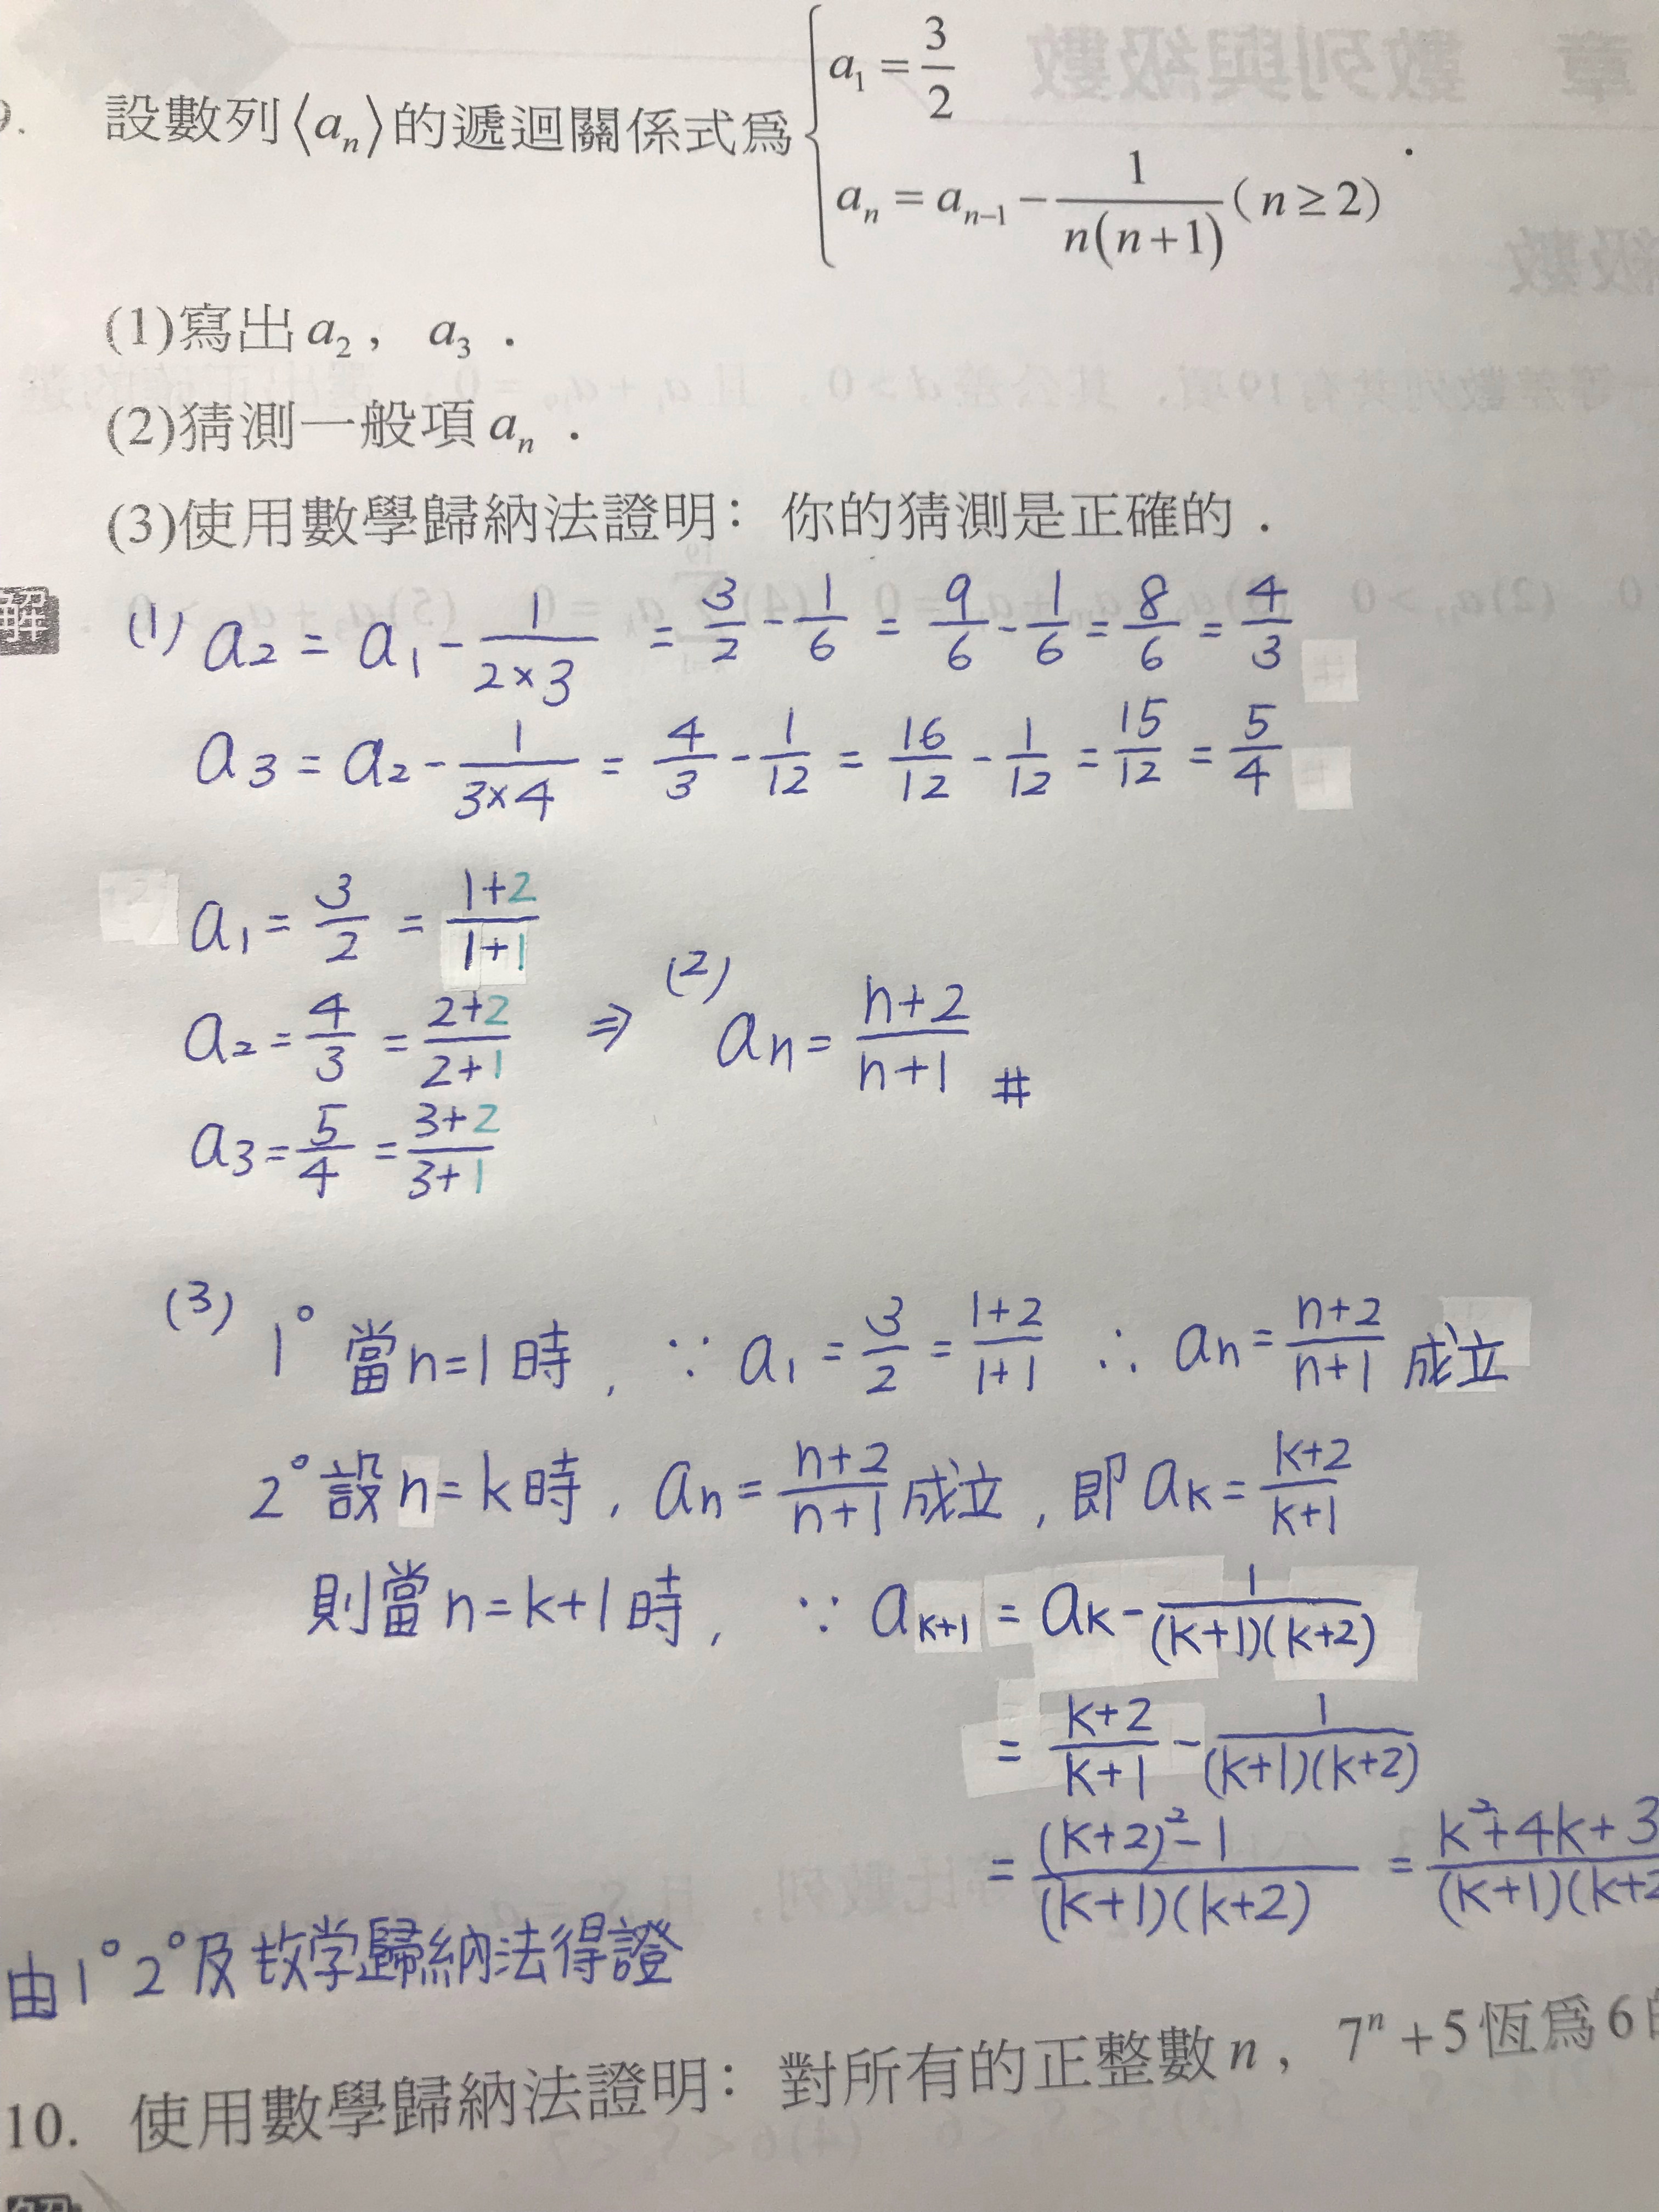 9. 設數列⟨aₙ⟩的遞迴關係式爲 { a₁ = 3/2
aₙ = aₙ₋₁ − 1/(n(n+1)) ( n ≥ 2) .
(1)寫出 a₂ , a₃ .
(2)猜測一般項 aₙ .
(3)使用數學歸納法證明：你的猜測是正確的 .
解
(1) a₂ = a₁ - 1/(2×3) = 3/2 - 1/6 = 9/6 - 1/6 = 8/6 = 4/3
a₃ = a₂ - 1/(3×4) = 4/3 - 1/12 = 16/12 - 1/12 = 15/12 = 5/4
a₁ = 3/2 = (1+2)/(1+1)
a₂ = 4/3 = (2+2)/(2+1) ⇒ (2) aₙ = (n+2)/(n+1) #
a₃ = 5/4 = (3+2)/(3+1)
(3) 1° 當n=1時, ∵ a₁ = 3/2 = (1+2)/(1+1) ∴ aₙ = (n+2)/(n+1) 成立
2° 設n=k時, aₙ = (n+2)/(n+1) 成立, 即 aₖ = (k+2)/(k+1)
則當n=k+1時, ∵ aₖ₊₁ = aₖ - 1/((k+1)(k+2))
= (k+2)/(k+1) - 1/((k+1)(k+2))
= ((k+2)²-1)/((k+1)(k+2)) = (k²+4k+3)/((k+1)(k+2
由1°2°及数学歸納法得證
10. 使用數學歸納法證明：對所有的正整數 n , 7ⁿ + 5 恆爲 6